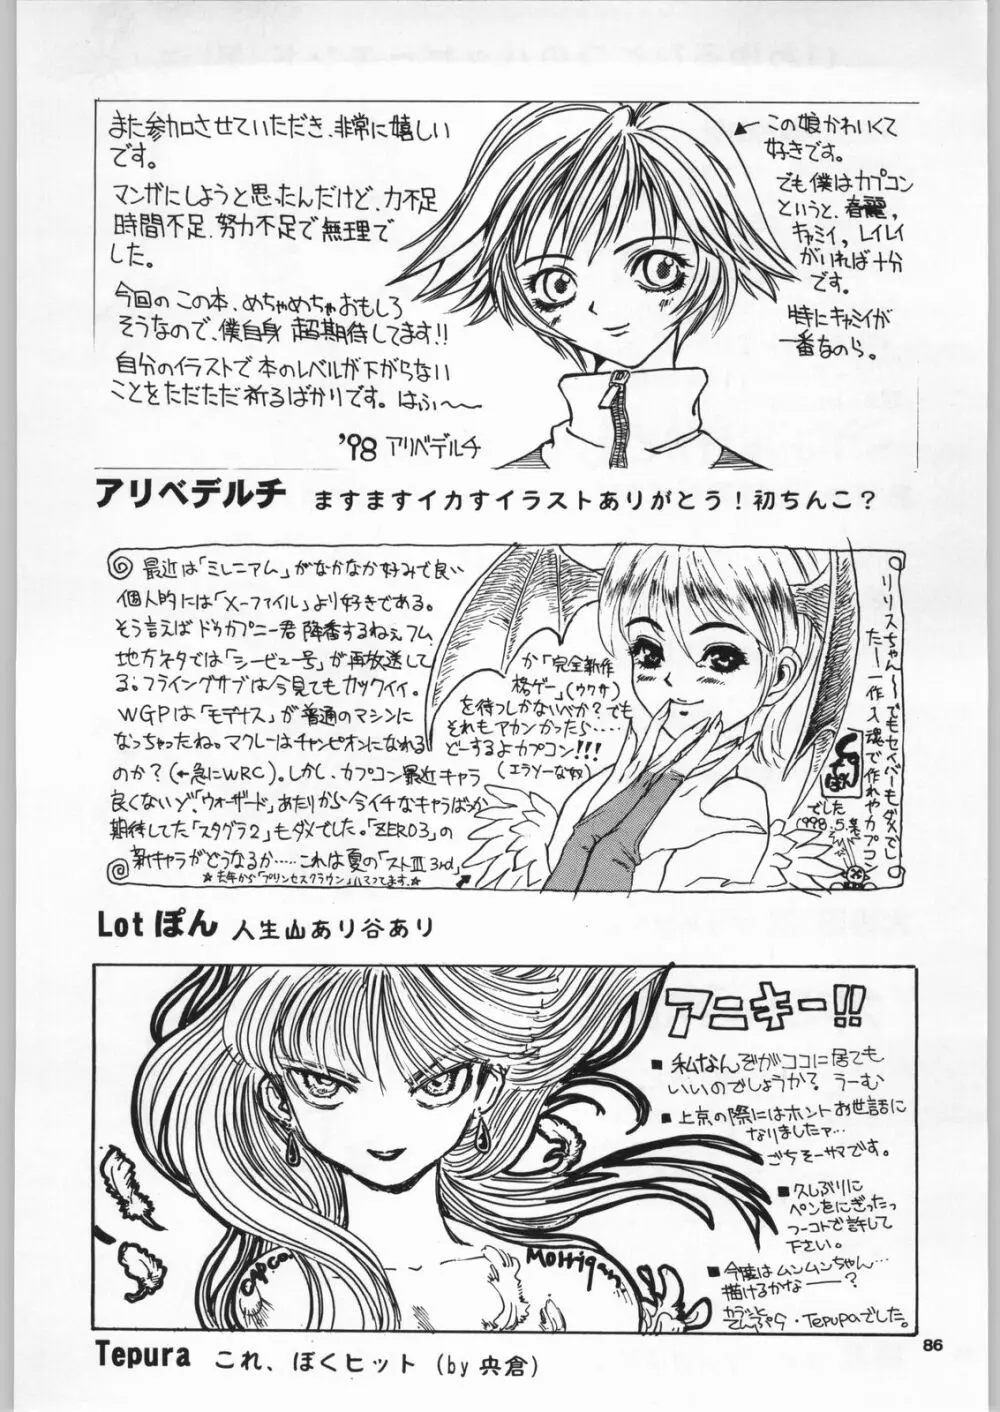 また参加させていただき、非常に嬉しい
です。
マンガにしようと思ったんだけど、力不足
時間不足、努力不足で無理で
した。
今回の この本、めちゃめちゃおもしろ
そうなので、僕自身 超期待してます!!
自分のイラストで 本のレベルが下がらない
ことをただただ祈るばかりです。はふ〜〜
'98 アリベデルチ
この娘かわいくて
好きです。
でも僕はカプコン
というと、春麗,
キャミイ, レイレイ
がいれば十分
です。
特にキャミイが
一番なのら。
アリベデルチ ますますイカすイラストありがとう！初ちんこ？
最近は「ミレニアム」がなかなか好みで良い
個人的には「X-ファイル」より好きである。
そう言えば ドゥカプニー君 降番するねぇ フム
地方ネタでは「シービュー号」が再放送して
る。フライングサブは今見てもカックイイ。
WGPは「モデナス」が普通のマシンに
なっちゃったね。マクレーはチャンピオンになれる
のか？(←急にWRC)。しかし、カプコン最近キャラ
良くないゾ。「ウォーザード」あたりから今イチなキャラばっか
期待してた「スタグラ2」もダメでした。「ZERO3」の
新キャラがどうなるか……これは夏の「ストⅢ 3rd」
☆去年から「プリンセスクラウン」ハマってます。☆
か「完全新作
格ゲー」(ウワサ)
を待つしかないべか？でも
それもアカンかったら……
どーするよカプコン!!!
(エラソーな奴)
リリスちゃん〜〜でもセイバーもダメでし
たー一作入魂で作れやカプコン
Lotぽん
でした
1998.5.
Lot ぽん 人生山あり谷あり
アニキー!!
■ 私なんぞがココに居ても
いいのでしょうか？ うーむ
■ 上京の際にはホント お世話に
なりましたァ…
ごちそーサマです。
■ 久しぶりに
ペンをにぎったっ
つーコトで許して
下さい。
■ 今度はムンムンちゃん…
描けるかな――？
カラッと
てんぷら・Tepupaでした。
CAPCO.
Morrigan.
Tepura これ、ぼくヒット (by 央倉)
86